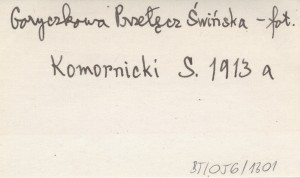 Goryczkowa Przełęcz Świńska - fot.
Komornicki S. 1913 a
BJ/OJG/1301